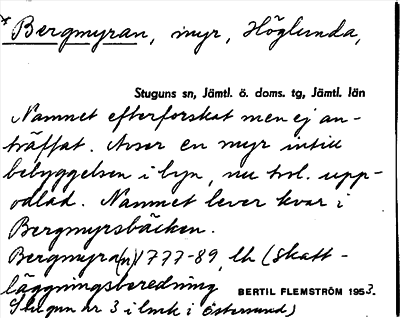 * Bergmyran, myr, Höglunda,
Stuguns sn, Jämtl. ö. doms. tg, Jämtl. län
Namnet efterforskat men ej an-
träffat. Avser en myr intill
bebyggelsen i byn, nu tvl. upp-
odlad. Namnet lever kvar i
Bergmyrsbäcken.
Bergmyra(n) 1777-89, lh (Skatt-
läggningsberedning
BERTIL FLEMSTRÖM 1953.
Stugun nr 3 i lmk i Östersund)